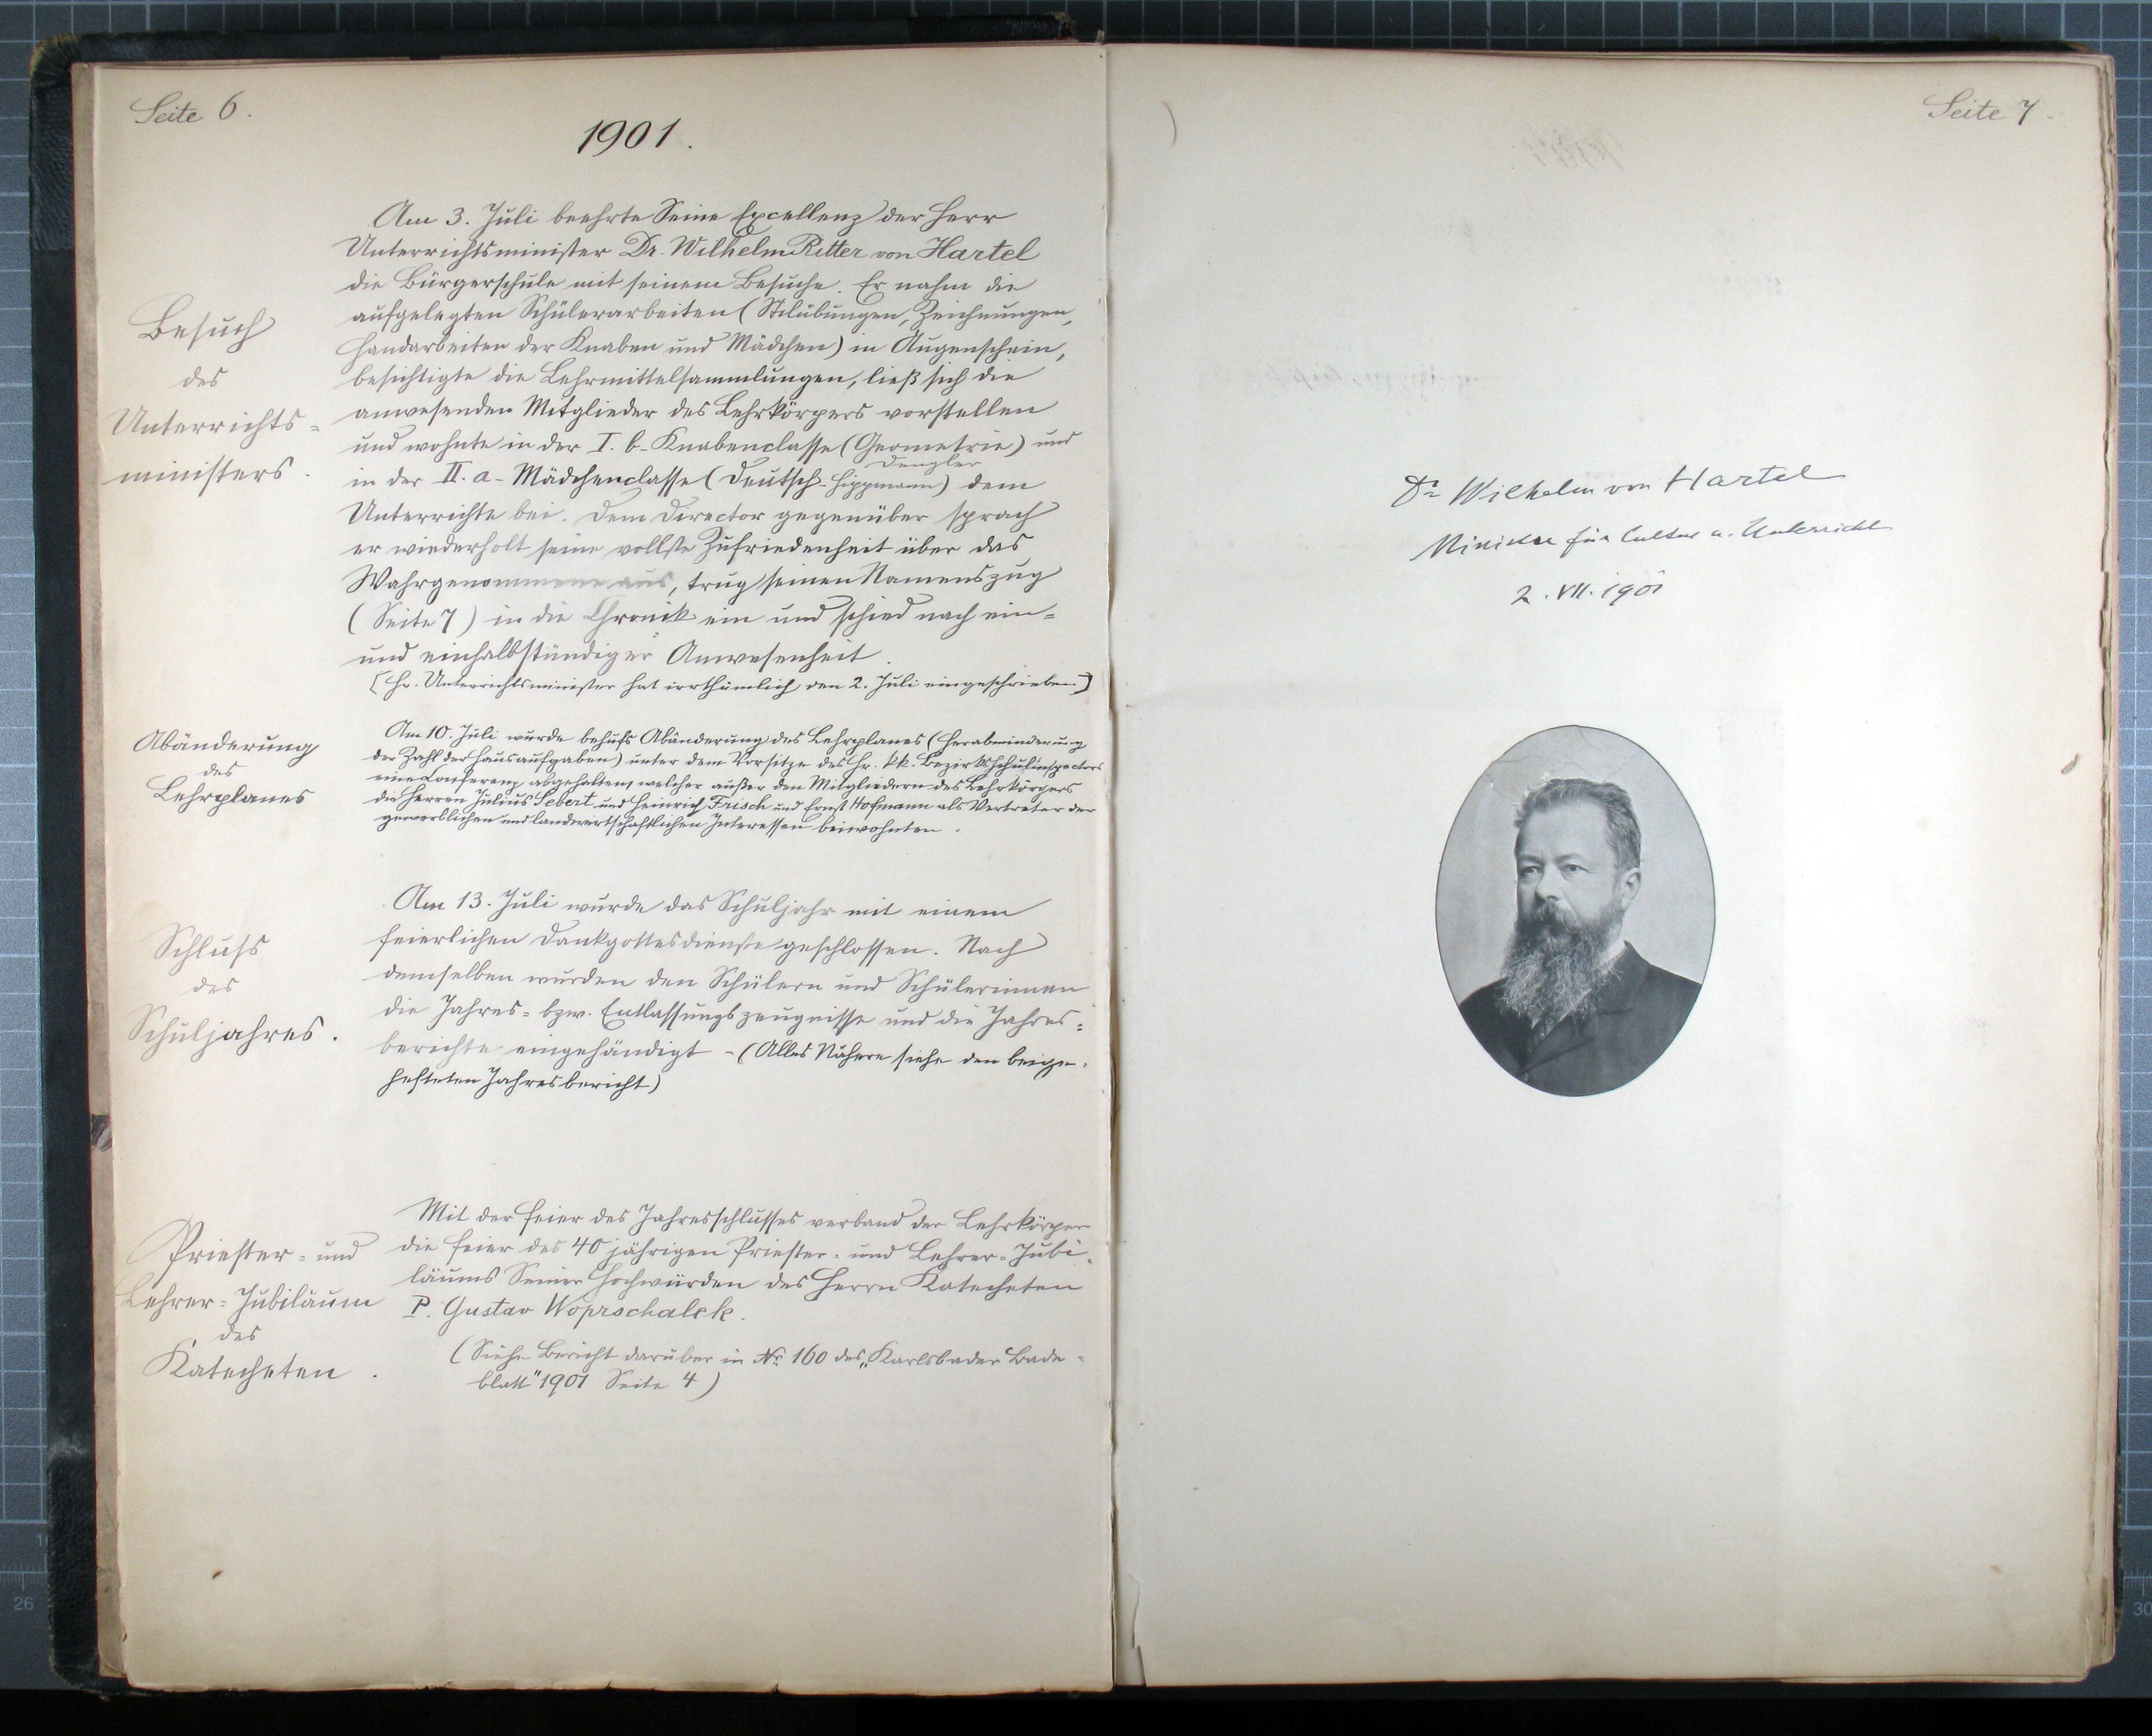 Seite 6.
1901.
Besuch
des
Unterrichts-
ministers.
Am 3. Juli beehrte Seine Excellenz der Herr
Unterrichtsminister Dr. Wilhelm Ritter von Hartel
die Bürgerschule mit seinem Besuche. Er nahm die
aufgelegten Schülerarbeiten (Stilübungen, Zeichnungen,
Handarbeiten der Knaben und Mädchen) in Augenschein,
besichtigte die Lehrmittelsammlungen, ließ sich die
anwesenden Mitglieder des Lehrkörpers vorstellen
und wohnte in der I. b-Knabenclasse (Geometrie) und
Denzler
in der II. a-Mädchenclasse (Deutsch-Hippmann) dem
Unterrichte bei. Dem Director gegenüber sprach
er wiederholt seine vollste Zufriedenheit über das
Wahrgenommene aus, trug seinen Namenszug
(Seite 7) in die Chronik ein und schied nach ein-
und einhalbstündiger Anwesenheit.
[Hr. Unterrichtsminister hat irrthümlich den 2. Juli eingeschrieben]
Abänderung
des
Lehrplanes
Am 10. Juli wurde behufs Abänderung des Lehrplanes (Herabminderung
der Zahl der Hausaufgaben) unter dem Vorsitze des Hr. kk. Bezirksschulinspectors
eine Conferenz abgehalten, welcher außer den Mitgliedern des Lehrkörpers
die Herren Julius Sebert und Heinrich Frisch und Ernst Hofmann als Vertreter der
gewerblichen und landwirtschaftlichen Interessen beiwohnten.
Schluss
des
Schuljahres.
Am 13. Juli wurde das Schuljahr mit einem
feierlichen Dankgottesdienste geschlossen. Nach
demselben wurden den Schülern und Schülerinnen
die Jahres- bzw. Entlassungszeugnisse und die Jahres-
berichte eingehändigt - (Alles Nähere siehe den beige-
hefteten Jahresbericht)
Priester- und
Lehrer-Jubiläum
des
Katecheten.
Mit der Feier des Jahresschlusses verband der Lehrkörper
die Feier des 40 jährigen Priester- und Lehrer-Jubi-
läums Seiner Hochwürden des Herrn Katecheten
P. Gustav Woprschalek.
(Siehe Bericht darüber in No 160 des "Karlsbader Bade-
blatt" 1901 Seite 4)
Seite 7.
Dr Wilhelm von Hartel
Minister für Cultus u. Unterricht
2. VII. 1901